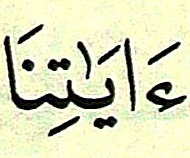 ءَايَٰتِنَا